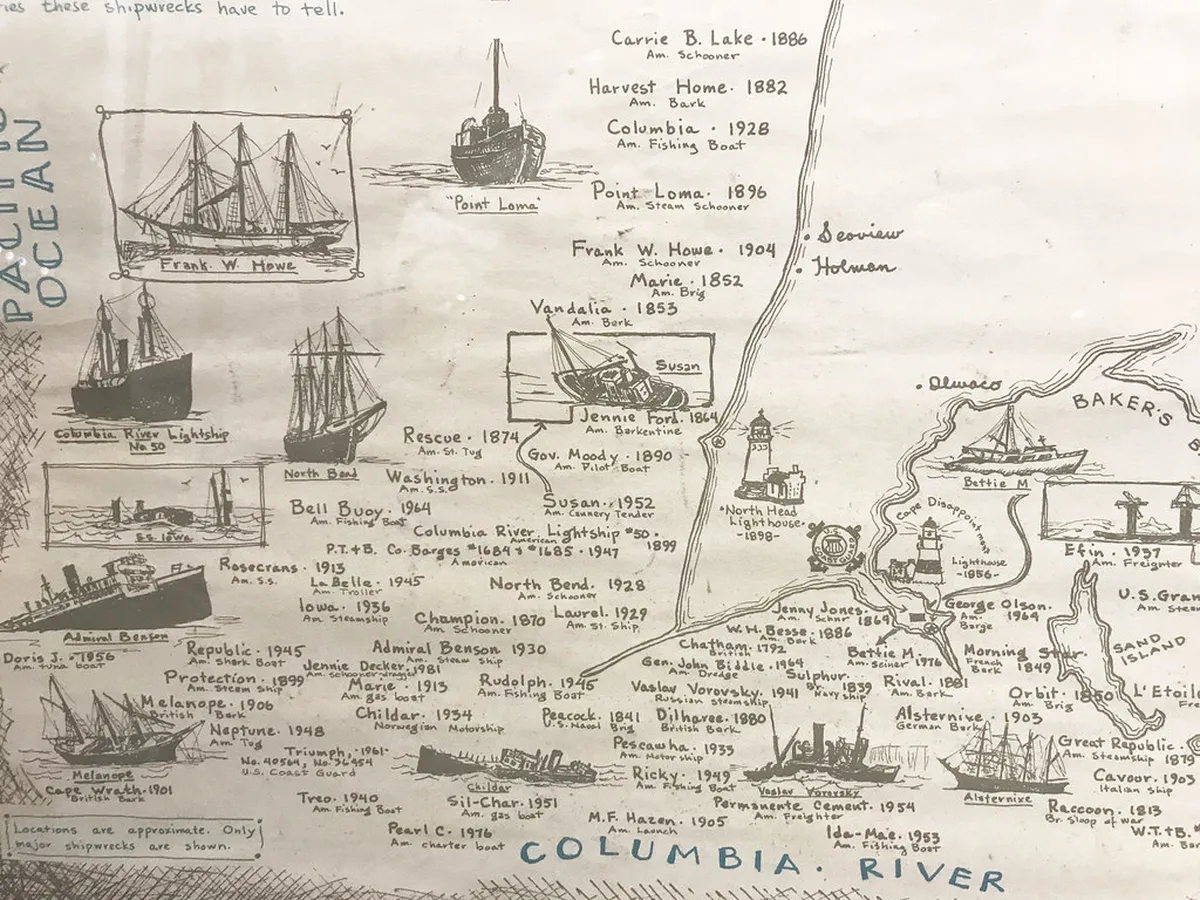 ies these shipwrecks have to tell.
Carrie B. Lake · 1886
Am. Schooner
Harvest Home · 1882
Am. Bark
Columbia · 1928
Am. Fishing Boat
"Point Loma"
Point Loma · 1896
Am. Steam Schooner
PACIFIC
OCEAN
Frank W. Howe
Frank W. Howe · 1904
Am. Schooner
Seaview
Holman
Marie · 1852
Am. Brig
Vandalia · 1853
Am. Bark
Susan
Jennie Ford. 1864
Am. Barkentine
Ilwaco
BAKER'S
Columbia River Lightship
No 50
North Bend
Rescue · 1874
Am. St. Tug
Gov. Moody · 1890
Am. Pilot Boat
Washington · 1911
Am. S.S.
Susan · 1952
Am. Cannery Tender
Bettie M
North Head
Lighthouse
-1898-
Cape Disappointment
Lighthouse
-1856-
U.S. COAST GUARD
S.S. Iowa
Bell Buoy · 1964
Am. Fishing Boat
Columbia River Lightship #50 ·
American
1899
P.T.+B. Co. Barges #1684 + #1685 · 1947
American
Efin · 1937
Am. Freighter
Rosecrans · 1913
Am. S.S.
La Belle · 1945
Am. Troller
North Bend · 1928
Am. Schooner
Iowa · 1936
Am. Steamship
Champion. 1870
Am. Schooner
Laurel. 1929
Am. St. Ship
Jenny Jones.
Am. Schnr 1864
George Olson.
Am. 1964
Barge
U.S. Gran
Am. Stea
Admiral Benson
W.H. Besse · 1886
Am. Bark
Chatham · 1792
British
Bettie M.
Am. Seiner 1976
Morning Star.
French
Bark 1849
SAND
ISLAND
Doris J. · 1956
Am. tuna boat
Republic · 1945
Am. Shark Boat
Admiral Benson 1930
Am. Steam Ship
Jennie Decker · 1981
Gen. John Biddle · 1964
Am. Dredge
Sulphur.
Br. 1839
Navy ship
Rival. 1881
Am. Bark
Protection · 1899
Am. Steam Ship
Marie · 1913
Am. gas boat
Rudolph. 1945
Am. Fishing Boat
Vaslav Vorovsky. 1941
Russian Steamship
Orbit · 1850
Am. Brig
L'Etoile
Melanope · 1906
British Bark
Neptune · 1948
Am Tug
Childar · 1934
Norwegian Motorship
Peacock · 1841
U.S. Naval Brig
Dilharee · 1880
British Bark
Alsternixe · 1903
German Bark
Triumph, ·1961·
No. 40564, No. 36454
U.S. Coast Guard
Pescawha · 1933
Am. Motor ship
Great Republic ·
Am. Steamship 1879
Melanope
Childar
Ricky · 1949
Am. Fishing Boat
Vaslav Vorovsky
Alsternixe
Cavour. 1903
Italian Ship
Cape Wrath · 1901
British Bark
Treo · 1940
Am. Fishing Boat
Sil-Char · 1951
Am. gas boat
Permanente Cement · 1954
Am. Freighter
Raccoon. 1813
Br. Sloop of war
M.F. Hazen · 1905
Am. Launch
Locations are approximate. Only
major shipwrecks are shown.
Pearl C · 1976
Am. charter boat
Ida-Mae. 1953
Am. Fishing Boat
W.T.+B.
Am. Bar
COLUMBIA · RIVER